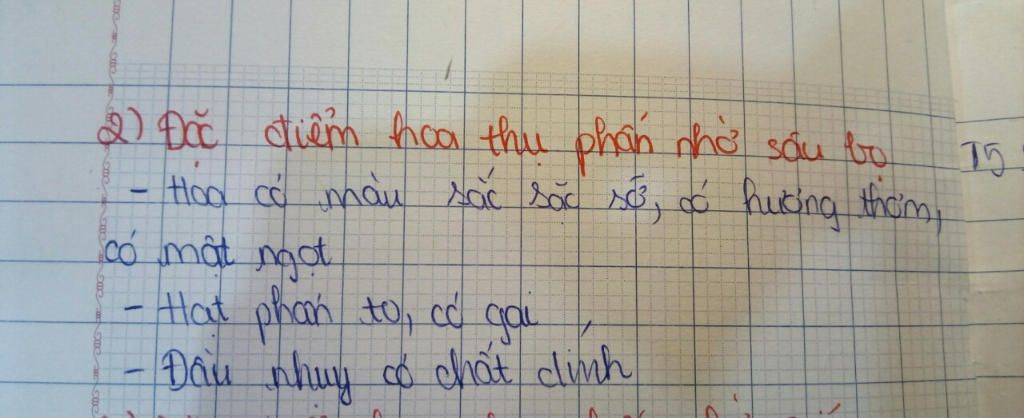 2) Đặc điểm hoa thụ phấn nhờ sâu bọ
- Hoa có màu sắc sặc sỡ, có hương thơm,
có mật ngọt
- Hạt phấn to, có gai
- Đầu nhụy có chất dính